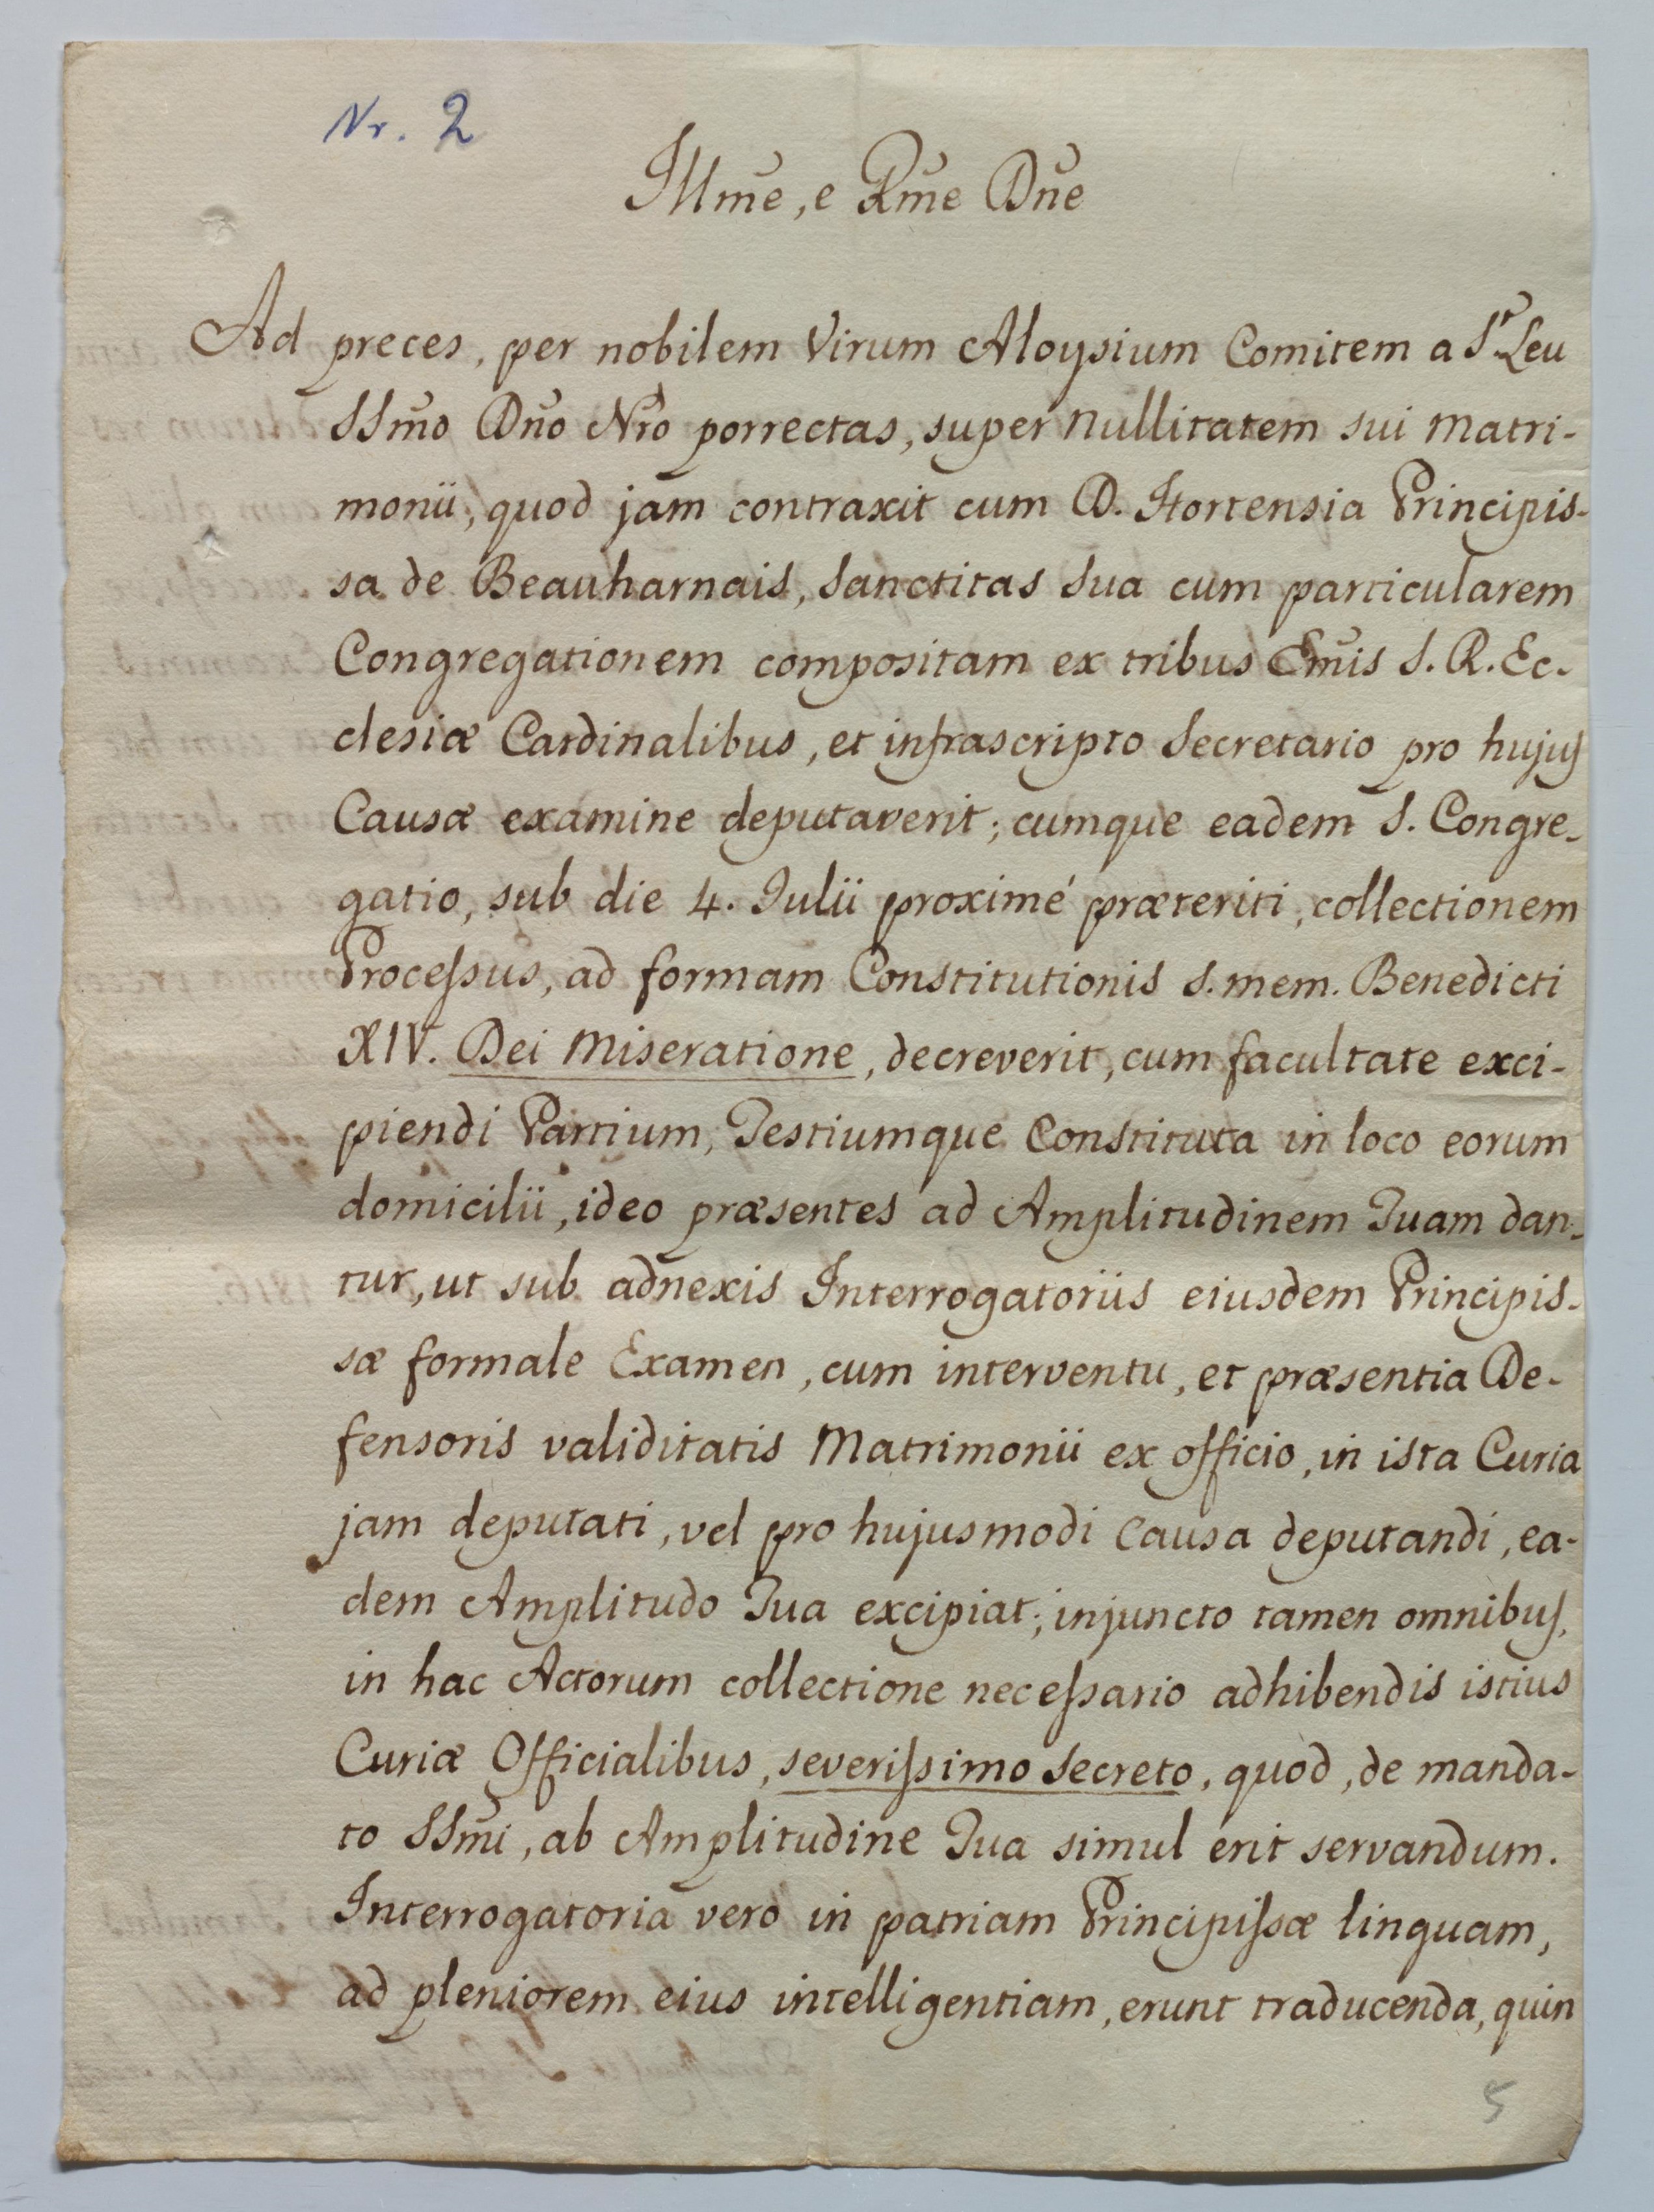 Nr. 2
Illm̃e, e Rm̃e Dñe
Ad preces, per nobilem Virum Aloysium Comitem a St. Leu
SSm̃o Dño Ñro porrectas, super Nullitatem sui Matri-
monii, quod jam contraxit cum D. Hortensia Principis-
sa de Beauharnais, Sanctitas Sua cum particularem
Congregationem compositam ex tribus Em̃is S. R. Ec-
clesiæ Cardinalibus, et infrascripto Secretario pro hujus
Causæ examine deputaverit; cumque eadem S. Congre-
gatio, sub die 4. Julii proximé præteriti, collectionem
Processus, ad formam Constitutionis s. mem. Benedicti
XIV. Dei Miseratione, decreverit, cum facultate exci-
piendi Partium, Testiumque Constituta in loco eorum
domicilii, ideo præsentes ad Amplitudinem Tuam dan-
tur, ut sub adnexis Interrogatoriis eiusdem Principis-
sæ formale Examen, cum interventu, et præsentia De-
fensoris validitatis Matrimonii ex officio, in ista Curia
jam deputati, vel pro hujusmodi Causa deputandi, ea-
dem Amplitudo Tua excipiat; injuncto tamen omnibus,
in hac Actorum collectione necessario adhibendis istius
Curiæ Officialibus, severissimo Secreto, quod, de manda-
to SSm̃i, ab Amplitudine Tua simul erit servandum.
Interrogatoria vero in patriam Principissæ linguam,
ad pleniorem eius intelligentiam, erunt traducenda, quin
5